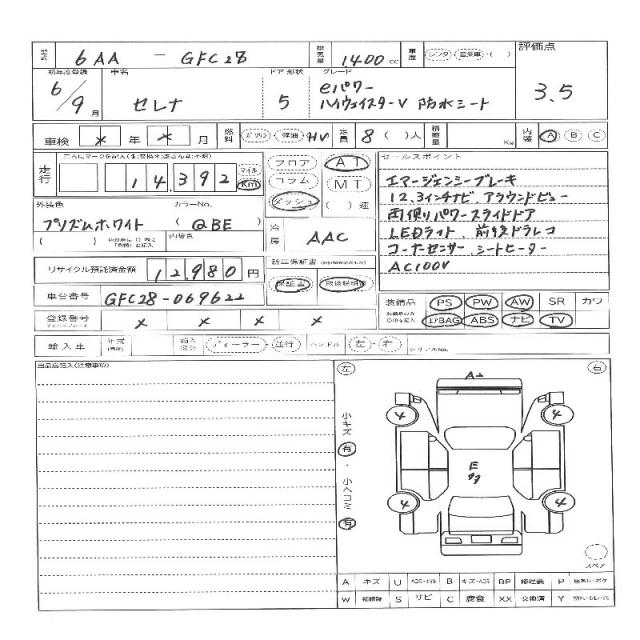 型式 6AA - GFC28 排気量 1400 cc 車歴 レンタ・営業車・( ) 評価点
初年度登録 車名 ドア形状 グレード
6/9月 セレナ 5 eパワー 3.5
ハイウェイスターV 防水シート
車検 * 年 * 月 燃料 ガソリン・軽油・HV 定員 8 ( )人 積載量 Kw 内装 A B C
走行 14,392 マイル Km フロア AT セールスポイント
コラム MT
ダッシュ ( )速
エマージェンシーブレーキ
12.3インチナビ、アラウンドビュー
両側パワースライドドア
LEDライト、前後ドラレコ
コーナーセンサー、シートヒーター
AC100V
外装色 カラーNo.
プリズムホワイト ( QBE )
( ) 内装色 冷房 AAC
リサイクル預託済金額 12,980 円 新車保証書
車台番号 GFC28-069622 保証書 取扱説明書
装備品 PS PW AW SR カワ
登録番号 × × × × AIRBAG ABS ナビ TV
輸入車 年式 輸入区分 ディーラー・並行 ハンドル 左・右 シリアルNo.
出品店記入(注意事項)
左 右
小キズ 有・小ヘコミ 有
4 4
E
4 4
スペア
A キズ U B キズ・ BP 修理跡 P
W 補修跡 S サビ C 腐食 XX 交換済 Y